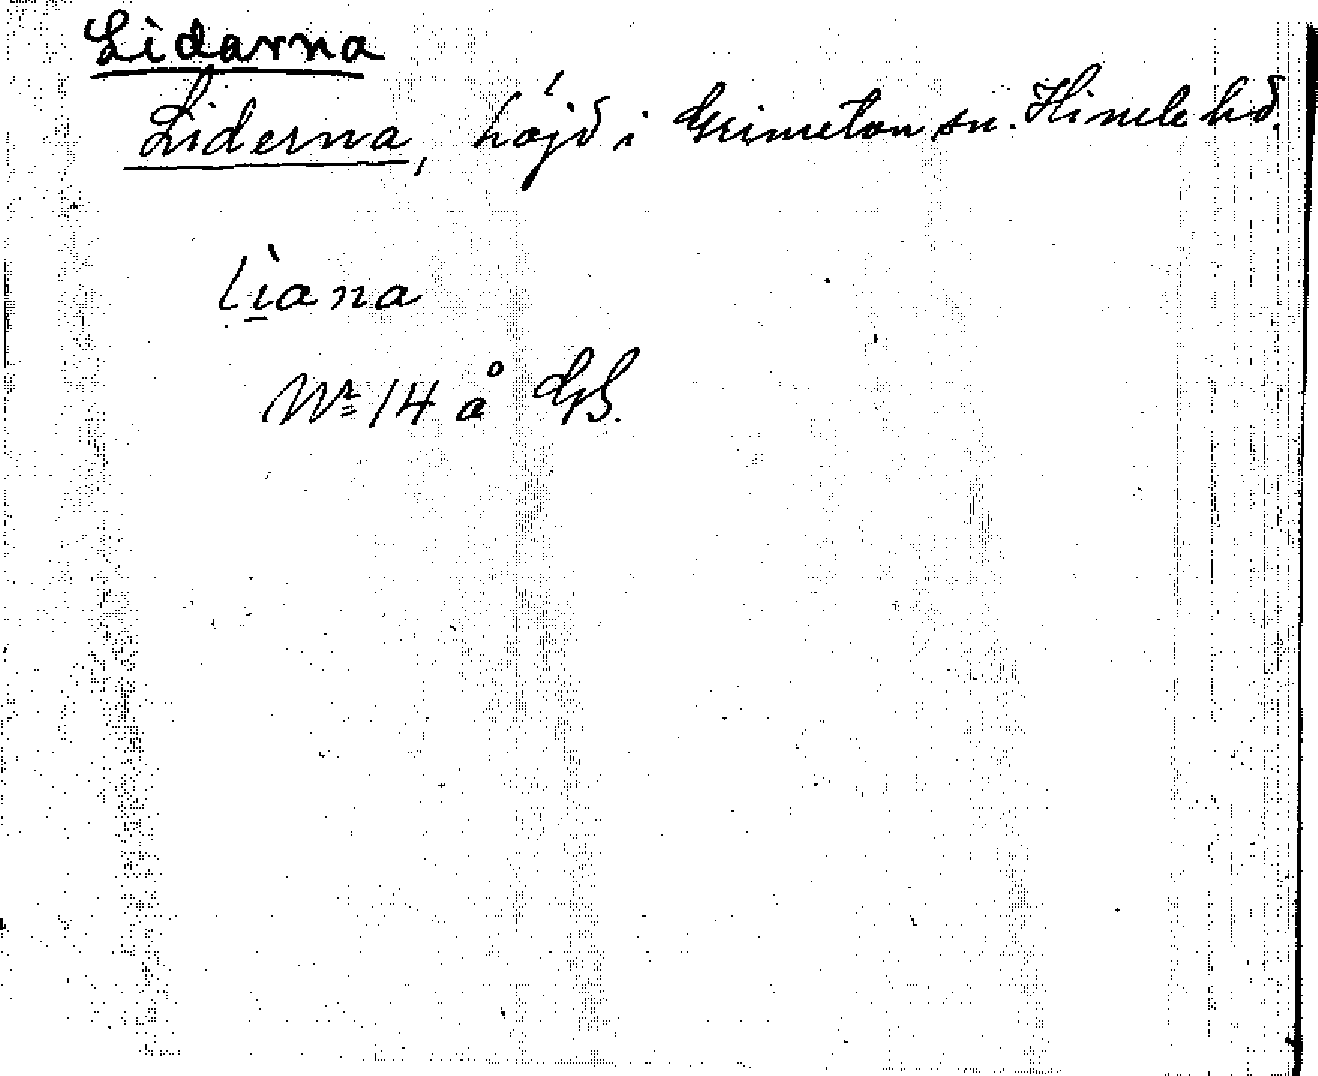 Lidarna
Liderna, höjd i Grimeton sn. Himle hd.
lìana
Nr 14 å GS.